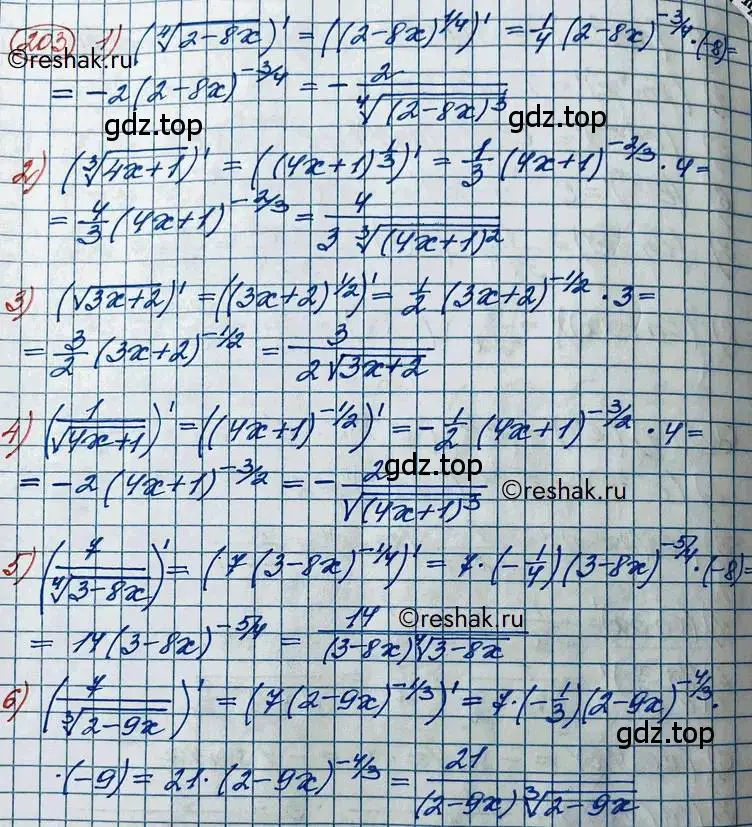 203 1) (∜(2-8x))' = ((2-8x)^(1/4))' = 1/4 (2-8x)^(-3/4) · (-8) =
©reshak.ru
= -2(2-8x)^(-3/4) = - 2/∜((2-8x)³)
gdz.top
gdz.top
2) (∛(4x+1))' = ((4x+1)^(1/3))' = 1/3 (4x+1)^(-2/3) · 4 =
= 4/3 (4x+1)^(-2/3) = 4/(3 ∛((4x+1)²))
3) (√(3x+2))' = ((3x+2)^(1/2))' = 1/2 (3x+2)^(-1/2) · 3 =
= 3/2 (3x+2)^(-1/2) = 3/(2√(3x+2))
4) (1/√(4x+1))' = ((4x+1)^(-1/2))' = -1/2 (4x+1)^(-3/2) · 4 =
= -2(4x+1)^(-3/2) = - 2/√((4x+1)³)
gdz.top
©reshak.ru
5) (7/∜(3-8x))' = (7(3-8x)^(-1/4))' = 7·(-1/4)(3-8x)^(-5/4) · (-8) =
= 14(3-8x)^(-5/4) = 14/((3-8x)∜(3-8x))
©reshak.ru
6) (7/∛(2-9x))' = (7(2-9x)^(-1/3))' = 7·(-1/3)(2-9x)^(-4/3) ·
gdz.top
·(-9) = 21·(2-9x)^(-4/3) = 21/((2-9x)∛(2-9x))
gdz.top